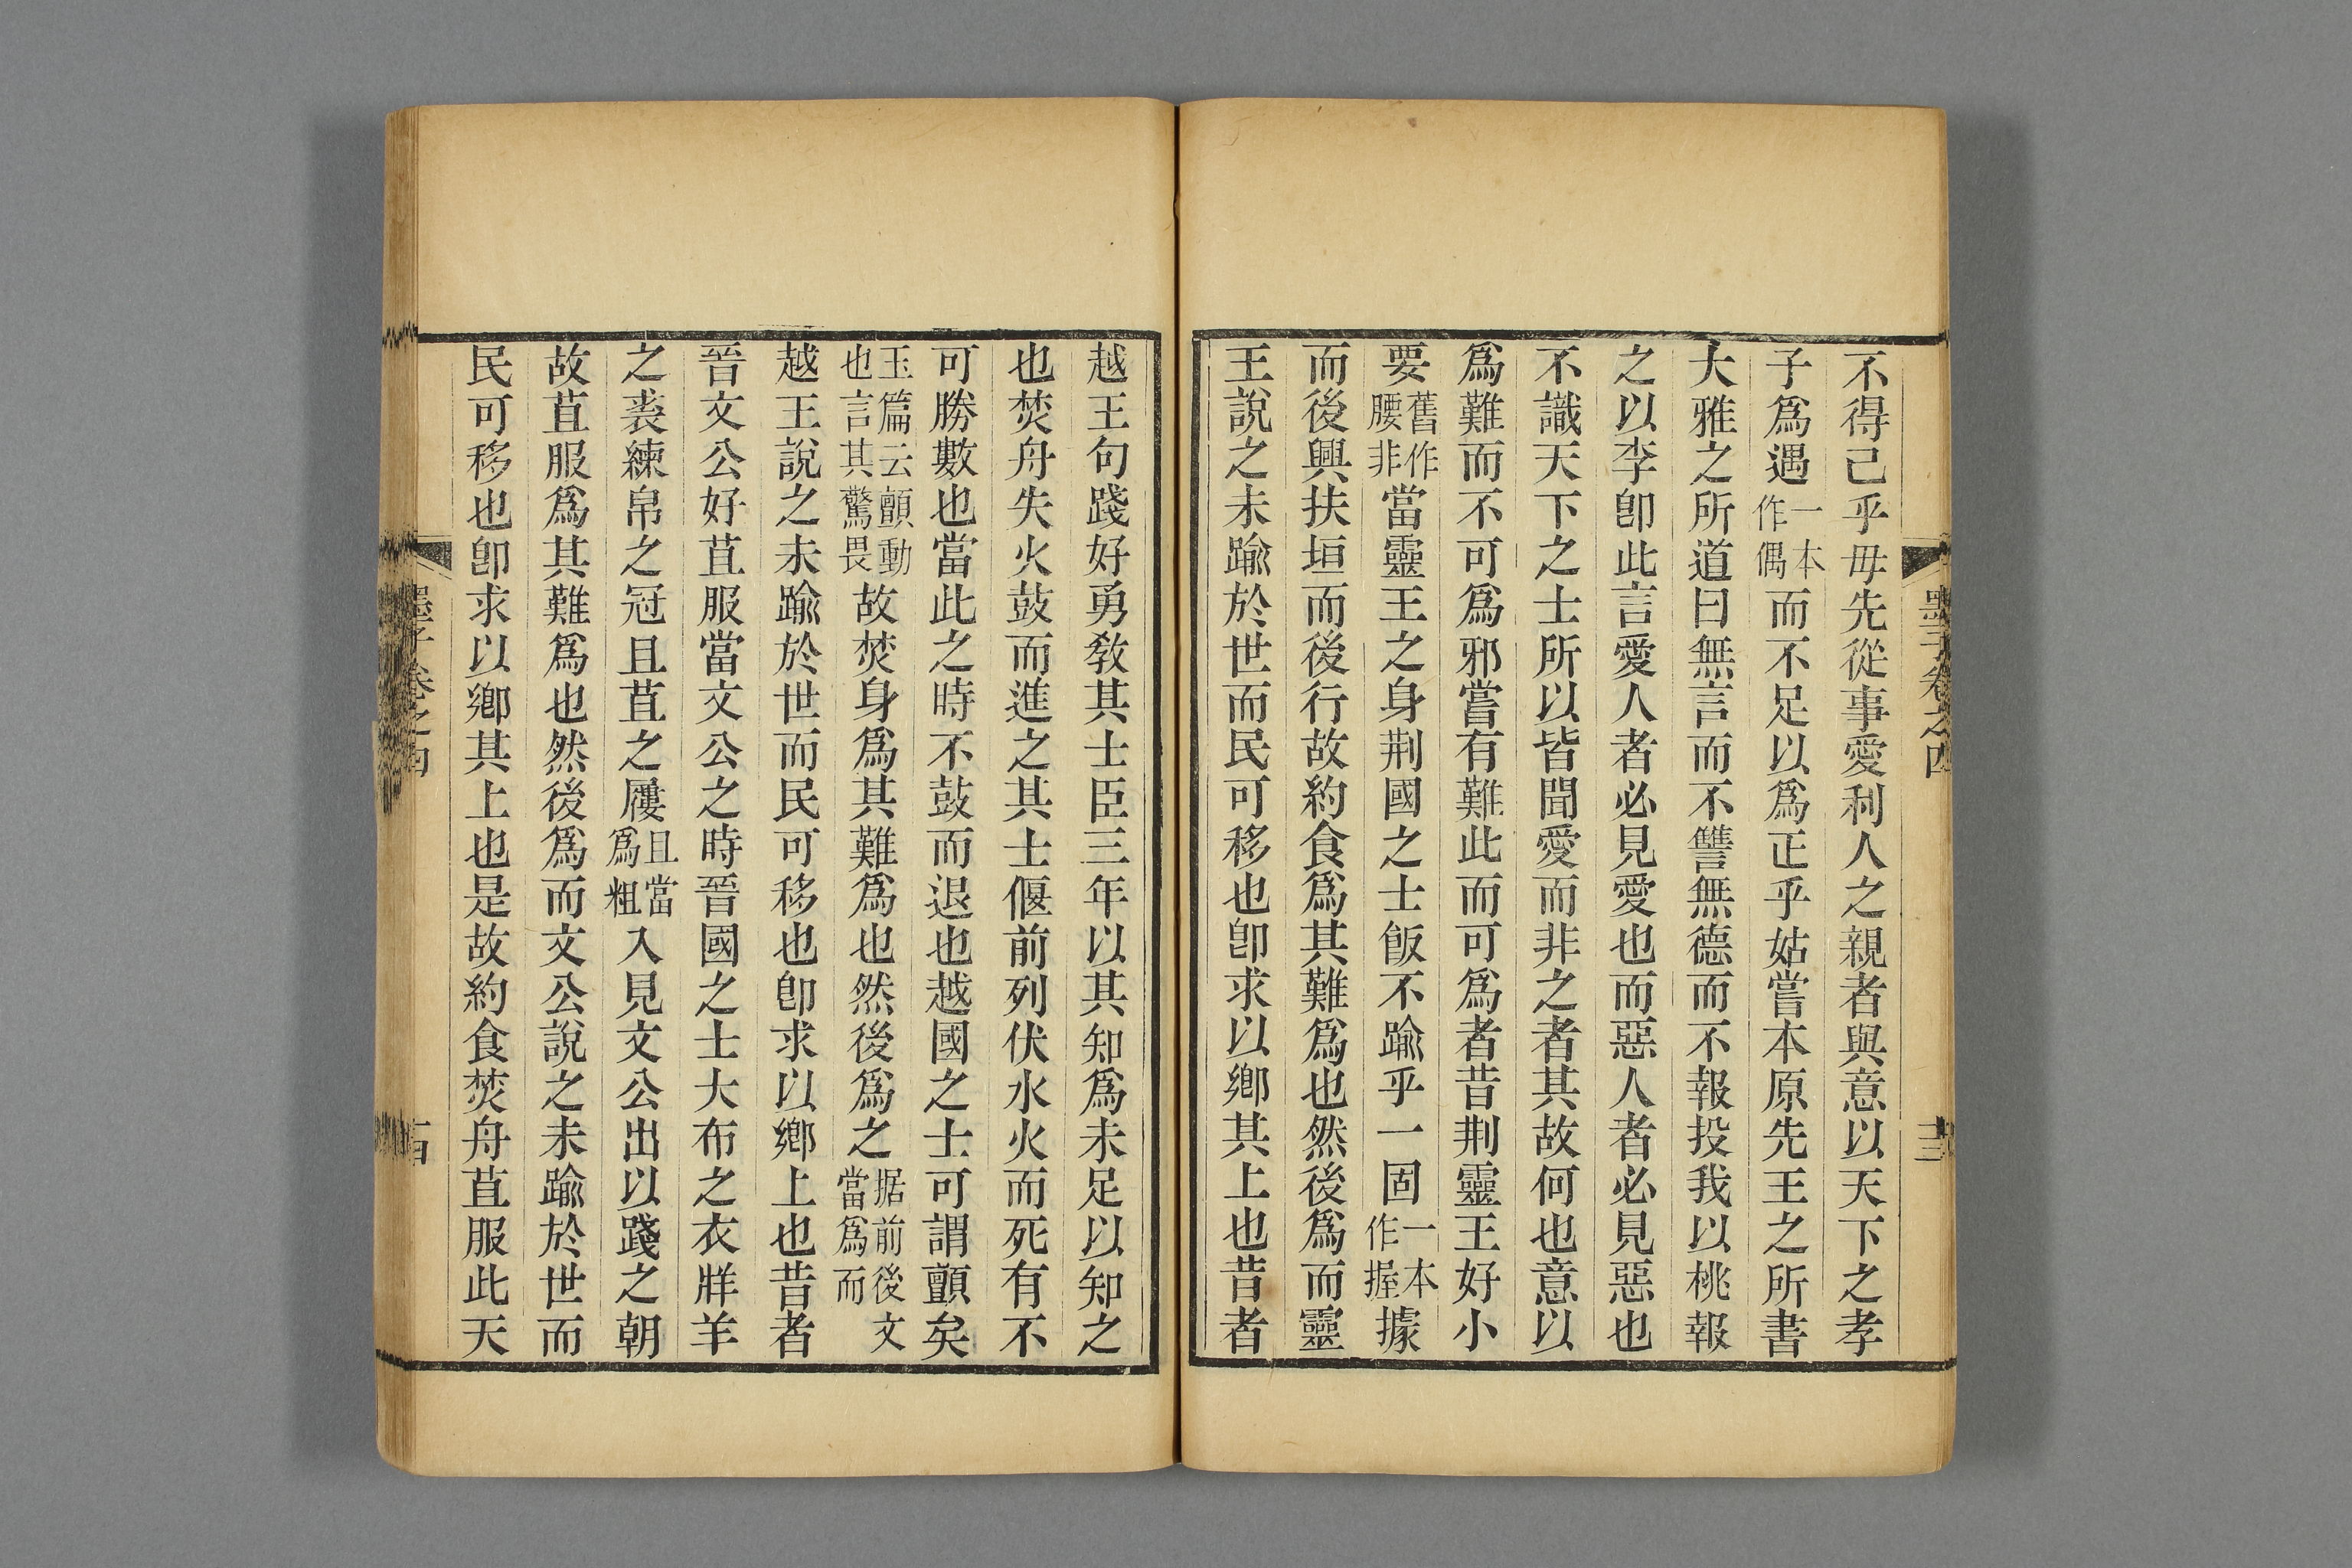 墨子卷之四
十三
不得已乎毋先從事愛利人之親者與意以天下之孝
子爲遇一本作偶而不足以爲正乎姑嘗本原先王之所書
大雅之所道曰無言而不讐無德而不報投我以桃報
之以李卽此言愛人者必見愛也而惡人者必見惡也
不識天下之士所以皆聞愛而非之者其故何也意以
爲難而不可爲邪嘗有難此而可爲者昔荆靈王好小
要舊作腰非當靈王之身荆國之士飯不踰乎一固一本作握據
而後興扶垣而後行故約食爲其難爲也然後爲而靈
王說之未踰於世而民可移也卽求以鄉其上也昔者
越王句踐好勇敎其士臣三年以其知爲未足以知之
也焚舟失火鼓而進之其士偃前列伏水火而死有不
可勝數也當此之時不鼓而退也越國之士可謂顫矣
玉篇云顫動也言其驚畏故焚身爲其難爲也然後爲之据前後文當爲而
越王說之未踰於世而民可移也卽求以鄉上也昔者
晉文公好苴服當文公之時晉國之士大布之衣牂羊
之裘練帛之冠且苴之屨且當爲粗入見文公出以踐之朝
故苴服爲其難爲也然後爲而文公說之未踰於世而
民可移也卽求以鄉其上也是故約食焚舟苴服此天
墨子卷之四